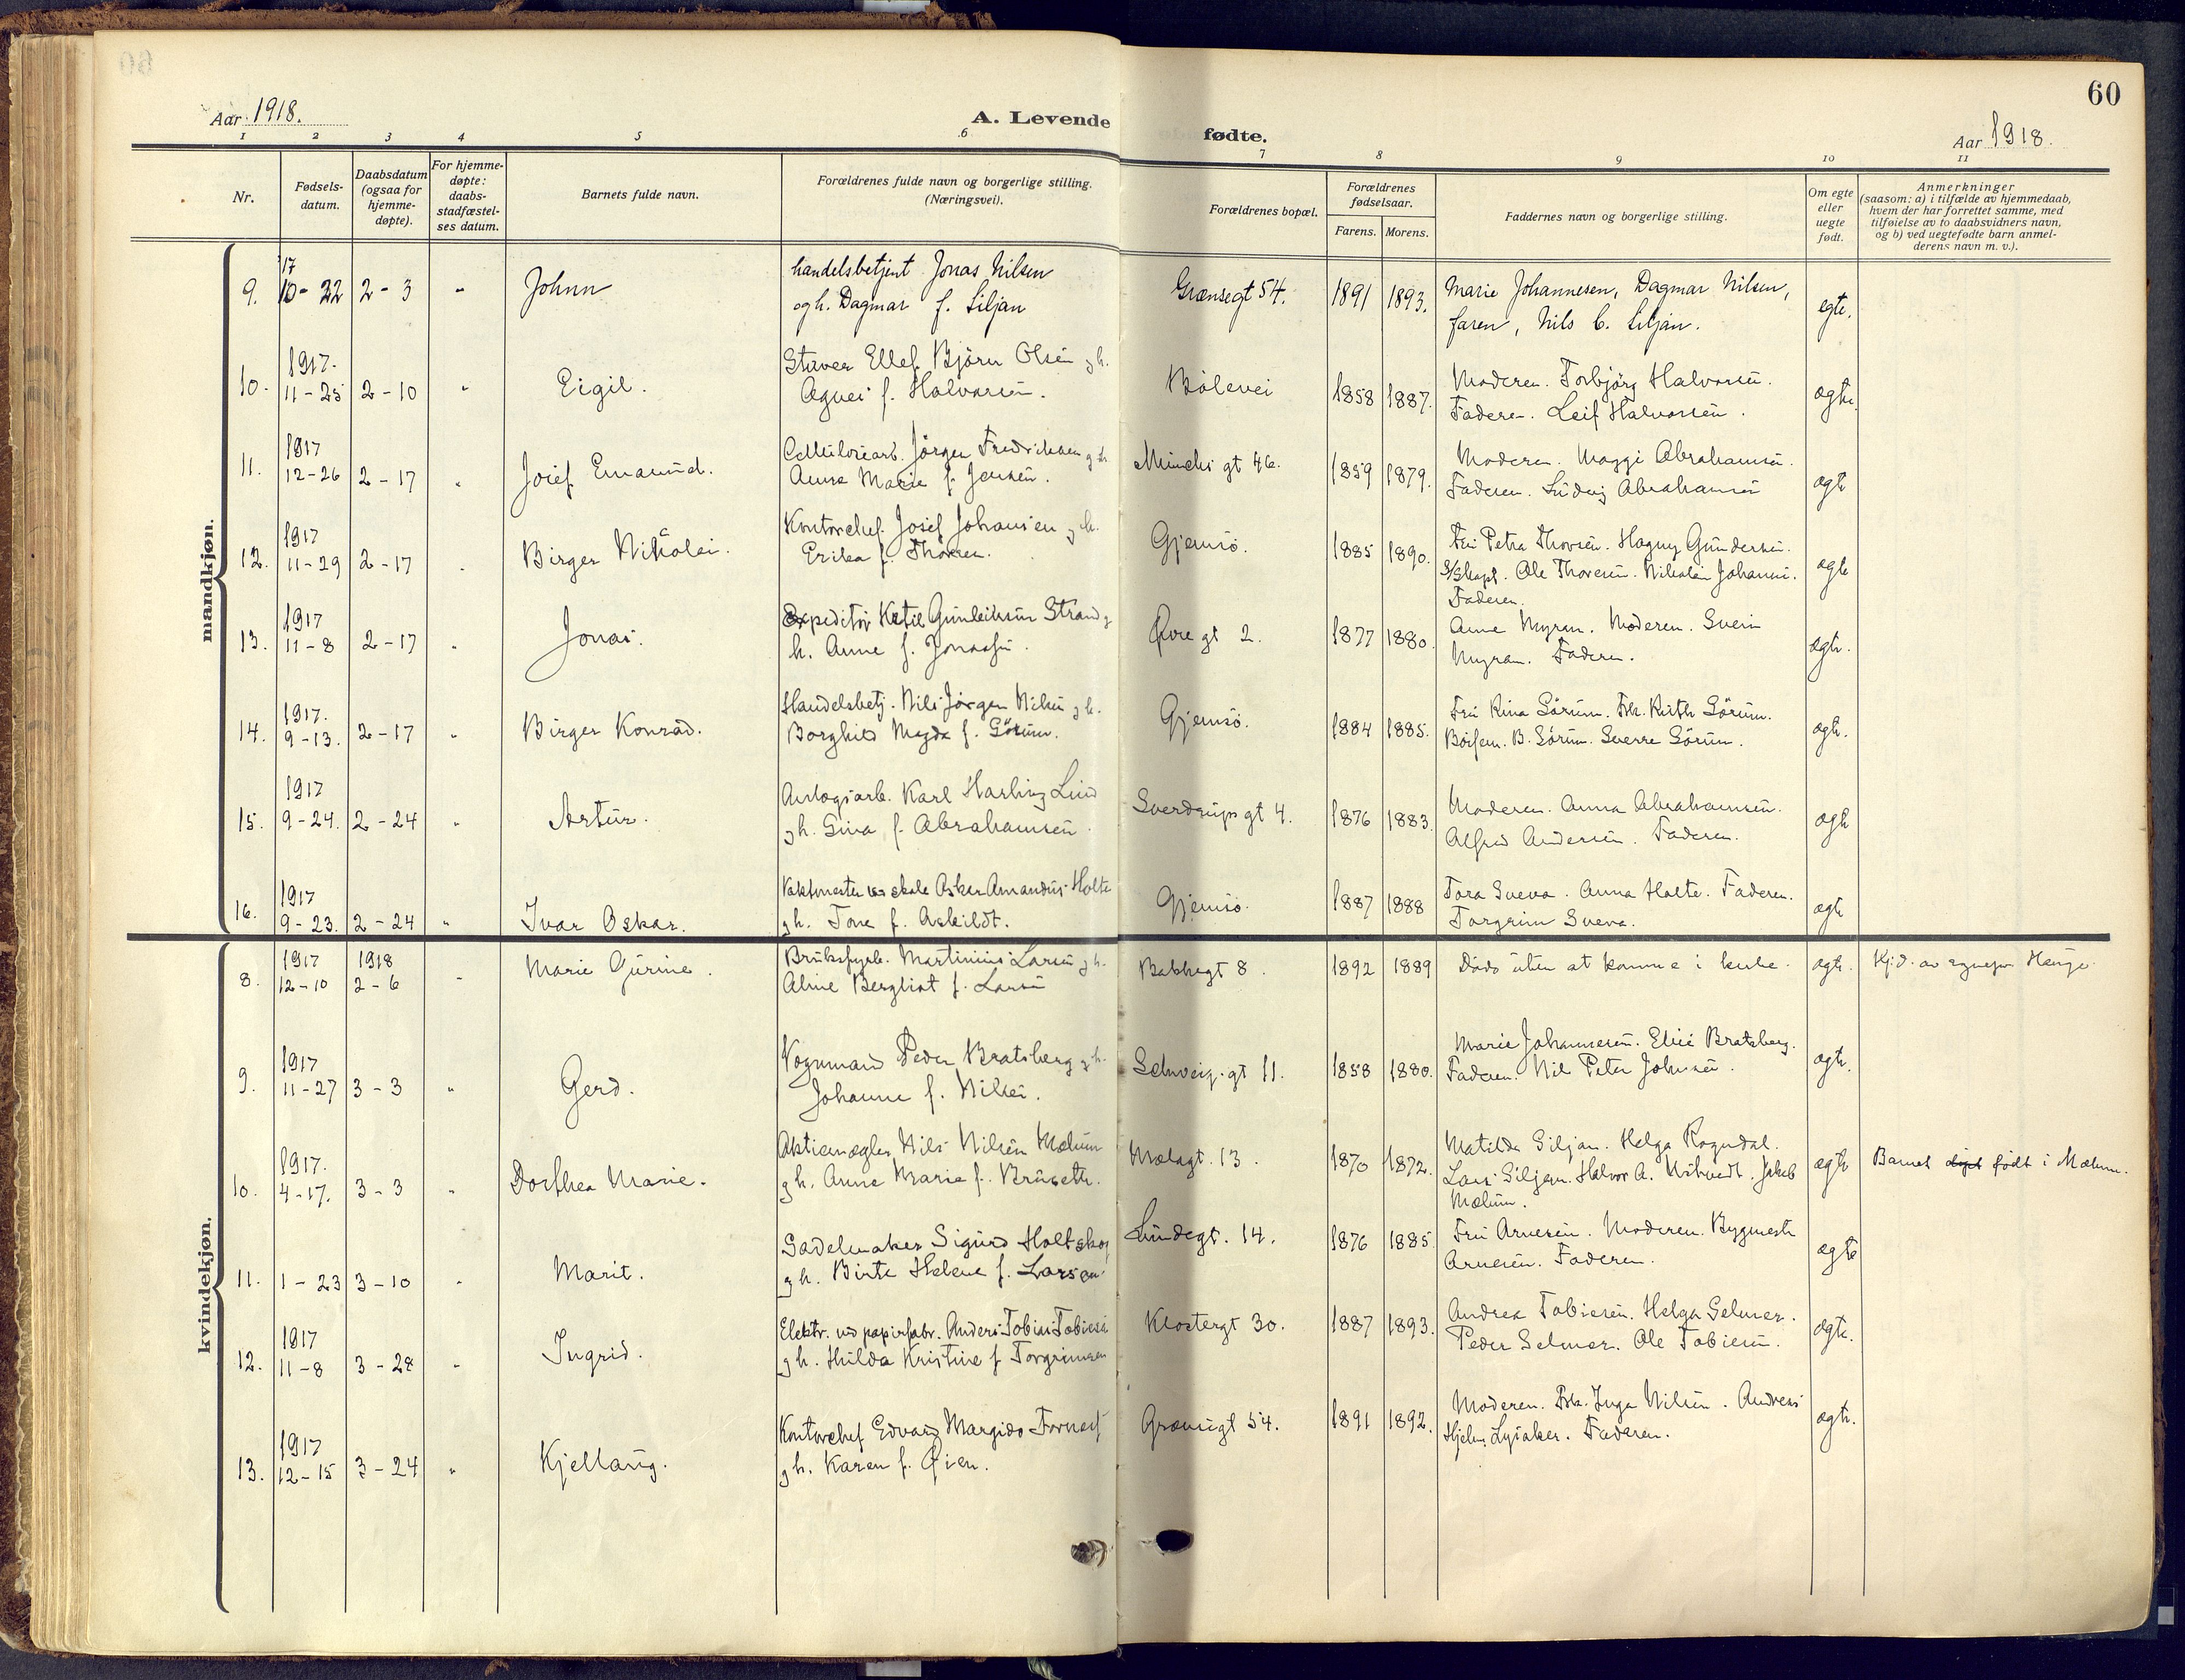 60
Aar 1918.
A. Levende fødte.
Aar 1918.
1 2 3 4 5 6 7 8 9 10 11
Nr.
Fødsels-
datum.
Daabsdatum
(ogsaa for
hjemme-
døpte).
For hjemme-
døpte:
daabs-
stadfæstel-
ses datum.
Barnets fulde navn.
Forældrenes fulde navn og borgerlige stilling.
(Næringsvei).
Forældrenes bopæl.
Forældrenes
fødselsaar.
Farens. Morens.
Faddernes navn og borgerlige stilling.
Om egte
eller
uegte
født.
Anmerkninger
(saasom: a) i tilfælde av hjemmedaab,
hvem der har forrettet samme, med
tilføielse av to daabsvidners navn,
og b) ved uegtefødte barn anmel-
derens navn m. v.).
mandkjøn.
'17 handelsbetjent Jonas Nilsen
9. 10-22 2-3 " Johnn Grænsegt 54. 1891 1893. Marie Johannesen, Dagmar Nilsen, egte.
og h. Dagmar f. Siljan faren, Nils C. Siljan.
1917. Stuver Ellef Björn Olsen og h.
10. 11-25 2-10 " Eigil. Agnes f. Halvorsen. Bölevei 1858 1887. Moderen. Torbjörg Halvorsen. ægte.
Faderen. Leif Halvorsen.
1917 Jörgen Fredriksen og h.
11. 12-26 2-17 " Josef Emanuel. Anna Marie f. Jensen. Munchs gt 46. 1859 1879. Moderen. Maggi Abrahamsen. ægte
Faderen. Ludvig Abrahamsen
1917 Kontorchef Josef Johansen og h.
12. 11-29 2-17 " Birger Nikolai. Erika f. Thorsen. Gjemsö. 1885 1890. Fru Petra Thovsen. Hagny Gundersen. ægte
S/Skapt. Ole Thoresen. Nikolai Johansen.
Faderen.
1917 Expeditör Ketil Gunleiksen Strand og
13. 11-8 2-17 " Jonas. h. Anne f. Jonassen. Øvre gt 2. 1877 1880. Anne Myran. Moderen. Svein ægte.
Myran. Faderen.
1917. Handelsbetj. Nils Jörgen Nilsen og h.
14. 9-13. 2-17 " Birger Konrad. Borghild Magda f. Sörum. Gjemsö. 1884 1885. Fru Rina Sörum. Frk. Ruth Sörum. ægte.
B. Sörum. Sverre Sörum.
1917 Anlægsarb. Karl Harling Lind
15. 9-24. 2-24 " Artur. og h. Gina f. Abrahamsen. Sverdrups gt 4. 1876 1883. Moderen. Anna Abrahamsen. ægte
Alfred Andersen. Faderen.
1917 Vaktmester ved skole Oskar Amandus Holte
16. 9-23. 2-24 " Ivar Oskar. og h. Tone f. Askildt. Gjemsö. 1887 1888 Tora Sveva. Anna Holte. Faderen. ægte
Torgrim Sveva.
kvindekjøn.
1917 1918 Martinius Larsen og h.
8. 12-10 2-6 " Marie Gurine. Aline Bergliot f. Larsen Bakkegt 8. 1892 1889 Döde uten at komme i kirke. ægte. Kj.d. av sognepr. Hauge.
1917 Vognmand Peder Bratsberg og h.
9. 11-27 3-3 " Gerd. Johanne f. Nilsen. Schweig. gt 11. 1858 1880. Marie Johannesen. Elise Bratsberg. ægte.
Faderen. Nils Peter Johnsen.
1917. Aktiemægler Nils Nilsen Mælum
10. 4-17. 3-3 " Dorthea Marie. og h. Anne Marie f. Bruseth. Mælagt. 13. 1870 1872. Matilde Siljan. Helga Rogndal. ægte Barnet døpt født i Mælum.
Lars Siljan. Halvor A. Jakob
Mælum.
Sadelmaker Sigurd Holtskog
11. 1-23 3-10 " Marit. og h. Birte Helene f. Larsen. Lundegt. 14. 1876 1885. Fru Arnesen. Moderen. Bygmestr. ægte
Arnesen. Faderen.
1917 Elektr. ved papirfabr. Anders Tobias Tobiesen
12. 11-8 3-28 " Ingrid. og h. Hilda Kristine f. Torgrimsen Klostergt 30. 1887 1893. Andrea Tobiesen. Helga Selmer. ægte.
Peder Selmer. Ole Tobiesen.
1917 Kontorchef Edvard Margido Fornes
13. 12-15 3-24 " Kjellaug. og h. Karen f. Øien. Grænsegt 54. 1891 1892. Moderen. Frk. Inga Nilsen. Andreas ægte.
Hjelm Lysaker. Faderen.